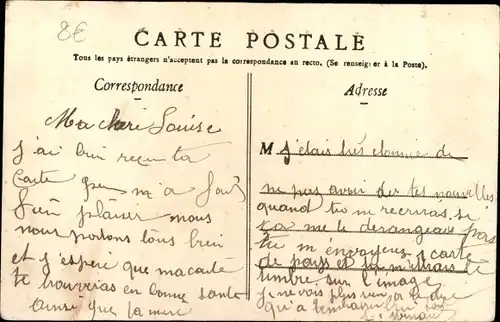 8€
CARTE POSTALE
Tous les pays étrangers n'acceptent pas la correspondance au recto. (Se renseigner à la Poste).
Correspondance
Adresse
Ma cheri Louise
j'ai bien recu ta
carte que m'a fait
un plaisir nous
nous portons tous bien
et j'espere que ma carte
te trouveras en bonne sante
ainsi que ta mere
M j'étais très étonnée de
ne pas avoir des tes nouvelles
quand tu m recriras si
ca me le derangeais pas
tu m envoyer carte
de pays et tu mettrais le
timbre sur l'image
j ne vois plus
qu'a t'embrasser